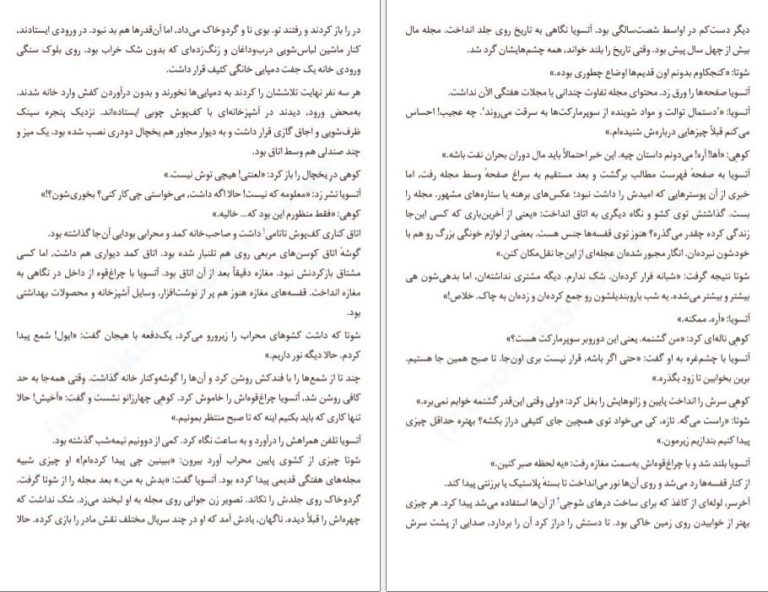 در را باز کردند و رفتند تو. بوی نا و گردوخاک می‌داد، اما آن‌قدرها هم بد نبود. در ورودی ایستادند،
کنار ماشین لباس‌شویی درب‌وداغان و زنگ‌زده‌ای که بدون شک خراب بود. روی بلوک سنگی
ورودی خانه یک جفت دمپایی خانگی کثیف قرار داشت.
هر سه نفر نهایت تلاششان را کردند به دمپایی‌ها نخورند و بدون درآوردن کفش وارد خانه شدند.
به‌محض ورود، دیدند در آشپزخانه‌ای با کف‌پوش چوبی ایستاده‌اند. نزدیک پنجره سینک
ظرف‌شویی و اجاق گازی قرار داشت و به دیوار مجاور هم یخچال دودری نصب شده بود. یک میز و
چند صندلی هم وسط اتاق بود.
کوهی در یخچال را باز کرد: «لعنتی! هیچی توش نیست.»
آتسویا تشر زد: «معلومه که نیست! حالا اگه داشت، می‌خواستی چی‌کار کنی؟ بخوری‌شون؟!»
کوهی: «فقط منظورم این بود که... خالیه.»
اتاق کناری کف‌پوش تاتامی۱ داشت و صاحب‌خانه کمد و محرابی بودایی آن‌جا گذاشته بود.
گوشهٔ اتاق کوسن‌های مربعی روی هم تلنبار شده بود. اتاق کمد دیواری هم داشت، اما کسی
مشتاق بازکردنش نبود. مغازه دقیقاً بعد از آن اتاق بود. آتسویا با چراغ‌قوه از داخل در نگاهی به
مغازه انداخت. قفسه‌های مغازه هنوز هم پر از نوشت‌افزار، وسایل آشپزخانه و محصولات بهداشتی
بود.
شوتا که داشت کشوهای محراب را زیرورو می‌کرد، یک‌دفعه با هیجان گفت: «ایول! شمع پیدا
کردم. حالا دیگه نور داریم.»
چند تا از شمع‌ها را با فندکش روشن کرد و آن‌ها را گوشه‌وکنار خانه گذاشت. وقتی همه‌جا به حد
کافی روشن شد، آتسویا چراغ‌قوه‌اش را خاموش کرد. کوهی چهارزانو نشست و گفت: «آخیش! حالا
تنها کاری که باید بکنیم اینه که تا صبح منتظر بمونیم.»
آتسویا تلفن همراهش را درآورد و به ساعت نگاه کرد. کمی از دوونیم نیمه‌شب گذشته بود.
شوتا چیزی از کشوی پایین محراب آورد بیرون: «ببینین چی پیدا کرده‌ام!» او چیزی شبیه
مجله‌های هفتگی قدیمی پیدا کرده بود. آتسویا گفت: «بدش به من.» بعد مجله را از شوتا گرفت.
گردوخاک روی جلدش را تکاند. تصویر زن جوانی روی مجله به او لبخند می‌زد. شک نداشت که
چهره‌اش را قبلاً دیده. ناگهان، یادش آمد که او در چند سریال مختلف نقش مادر را بازی کرده. حالا
دیگر دست‌کم در اواسط شصت‌سالگی بود. آتسویا نگاهی به تاریخ روی جلد انداخت. مجله مال
بیش از چهل سال پیش بود. وقتی تاریخ را بلند خواند، همه چشم‌هایشان گرد شد.
شوتا: «کنجکاوم بدونم اون قدیم‌ها اوضاع چطوری بوده.»
آتسویا صفحه‌ها را ورق زد. محتوای مجله تفاوت چندانی با مجلات هفتگی الآن نداشت.
آتسویا: «'دستمال توالت و مواد شوینده از سوپرمارکت‌ها به سرقت می‌روند'. چه عجیب! احساس
می‌کنم قبلاً چیزهایی درباره‌ش شنیده‌ام.»
کوهی: «آها! آره! می‌دونم داستان چیه. این خبر احتمالاً باید مال دوران بحران نفت باشه.»
آتسویا به صفحهٔ فهرست مطالب برگشت و بعد مستقیم به سراغ صفحهٔ وسط مجله رفت، اما
خبری از آن پوسترهایی که امیدش را داشت نبود؛ عکس‌های برهنه یا ستاره‌های مشهور. مجله را
بست. گذاشتش توی کشو و نگاه دیگری به اتاق انداخت: «یعنی از آخرین‌باری که کسی این‌جا
زندگی کرده چقدر می‌گذره؟ هنوز توی قفسه‌ها جنس هست. بعضی از لوازم خونگی بزرگ رو هم با
خودشون نبرده‌ان. انگار مجبور شده‌ان عجله‌ای از این‌جا نقل‌مکان کنن.»
شوتا نتیجه گرفت: «شبانه فرار کرده‌ان. شک ندارم. دیگه مشتری نداشته‌ان، اما بدهی‌شون هی
بیشتر و بیشتر می‌شده. یه شب باروبندیلشون رو جمع کرده‌ان و زده‌ان به چاک. خلاص!»
آتسویا: «آره. ممکنه.»
کوهی ناله‌ای کرد: «من گشنمه. یعنی این دوروبر سوپرمارکت هست؟»
آتسویا با چشم‌غره به او گفت: «حتی اگر باشه، قرار نیست بری اون‌جا. تا صبح همین جا هستیم.
برین بخوابین تا زود بگذره.»
کوهی سرش را انداخت پایین و زانوهایش را بغل کرد: «ولی وقتی این‌قدر گشنمه خوابم نمی‌بره.»
شوتا: «راست می‌گه. تازه، کی می‌خواد توی همچین جای کثیفی دراز بکشه؟ بهتره حداقل چیزی
پیدا کنیم بندازیم زیرمون.»
آتسویا بلند شد و با چراغ‌قوه‌اش به‌سمت مغازه رفت: «یه لحظه صبر کنین.»
از کنار قفسه‌ها رد می‌شد و روی آن‌ها نور می‌انداخت تا بستهٔ پلاستیک یا برزنتی پیدا کند.
آخرسر، لوله‌ای از کاغذ که برای ساخت درهای شوجی۲ از آن‌ها استفاده می‌شد پیدا کرد. هر چیزی
بهتر از خوابیدن روی زمین خاکی بود. تا دستش را دراز کرد آن را بردارد، صدایی از پشت سرش